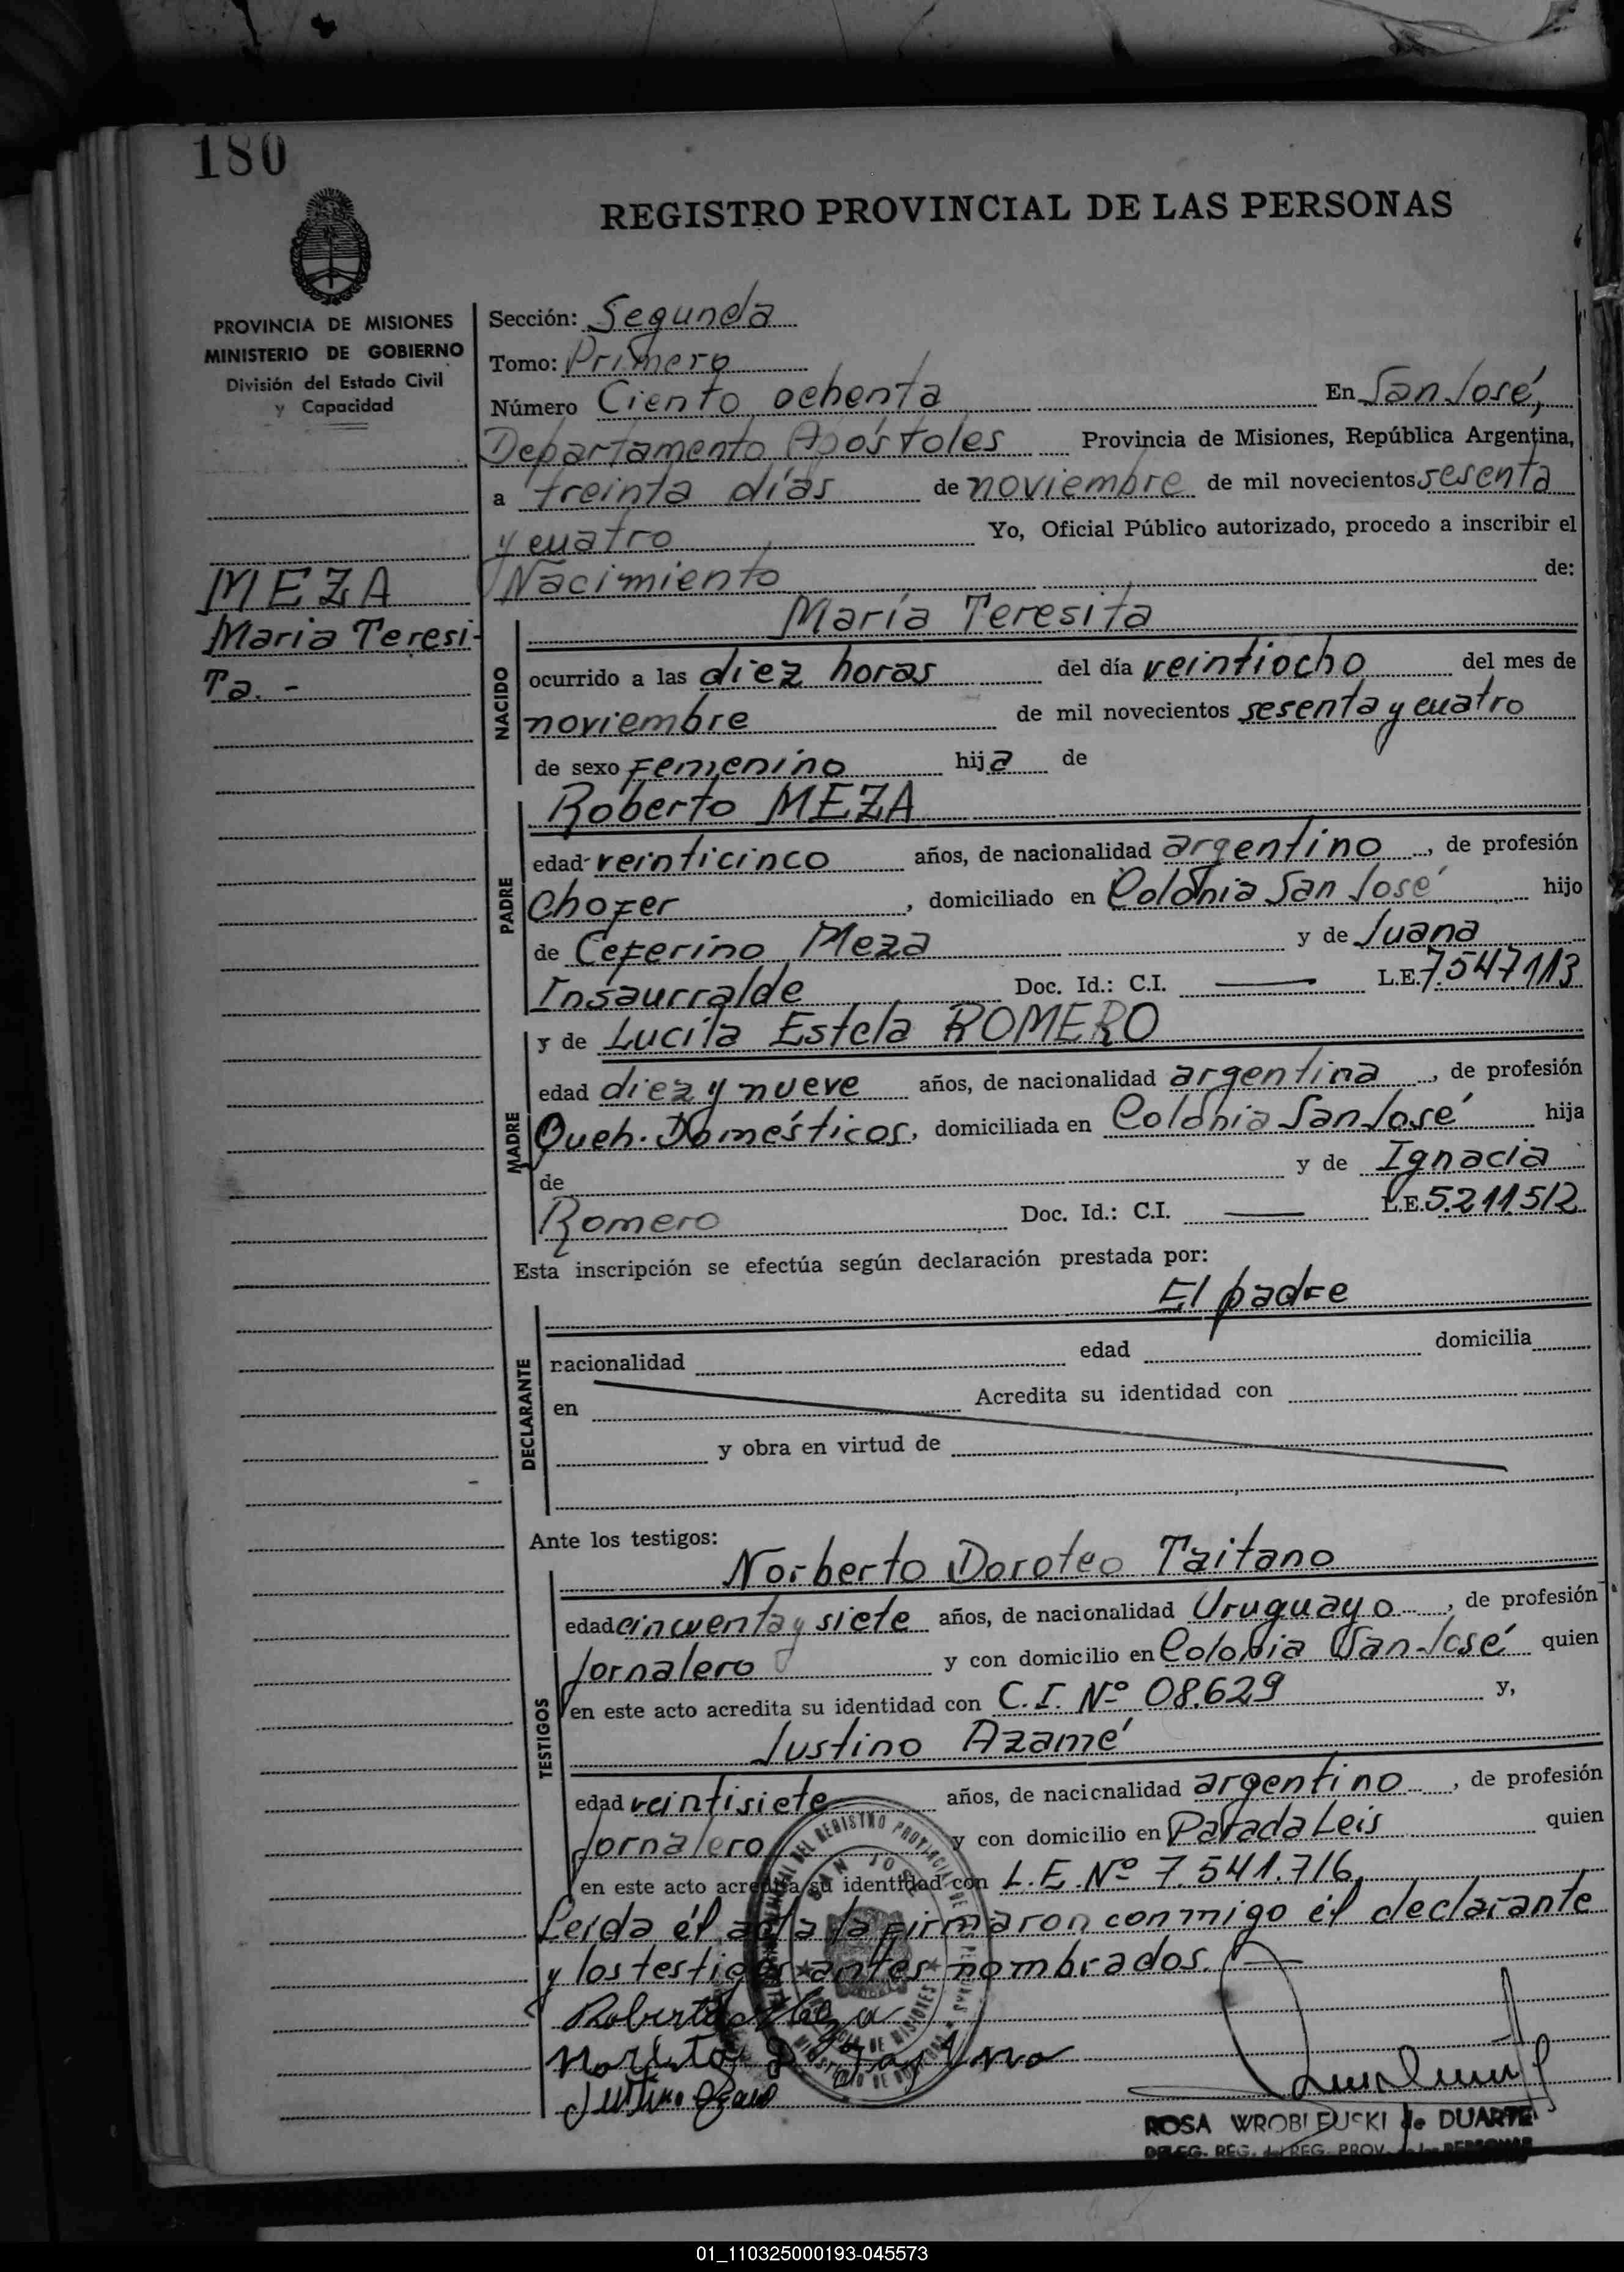 180
REGISTRO PROVINCIAL DE LAS PERSONAS
PROVINCIA DE MISIONES
MINISTERIO DE GOBIERNO
División del Estado Civil
y Capacidad
MEZA
Maria Teresi-
Ta. -
Sección: Segunda
Tomo: Primero
Número Ciento ochenta En San José,
Departamento Apóstoles Provincia de Misiones, República Argentina,
a treinta días de noviembre de mil novecientos sesenta
y cuatro Yo, Oficial Público autorizado, procedo a inscribir el
Nacimiento de:
María Teresita
NACIDO
ocurrido a las diez horas del día veintiocho del mes de
noviembre de mil novecientos sesenta y cuatro
de sexo femenino hija de
PADRE
Roberto MEZA
edad veinticinco años, de nacionalidad argentino, de profesión
Chofer, domiciliado en Colonia San José hijo
de Ceferino Meza y de Juana
Insaurralde Doc. Id.: C.I. — L.E. 7.547.113
MADRE
y de Lucila Estela ROMERO
edad diez y nueve años, de nacionalidad argentina, de profesión
Queh. Domésticos, domiciliada en Colonia San José hija
de y de Ignacia
Romero Doc. Id.: C.I. — L.E. 5.211.512
Esta inscripción se efectúa según declaración prestada por:
El padre
DECLARANTE
nacionalidad edad domicilia
en Acredita su identidad con
y obra en virtud de
Ante los testigos:
TESTIGOS
Norberto Doroteo Taitano
edad cincuenta y siete años, de nacionalidad Uruguayo, de profesión
Jornalero y con domicilio en Colonia San José quien
en este acto acredita su identidad con C.I. Nº 08.629 y,
Justino Azamé
edad veintisiete años, de nacionalidad argentino, de profesión
Jornalero y con domicilio en Parada Leis quien
en este acto acredita su identidad con L.E. Nº 7.541.716
Leida él acta la firmaron conmigo él declarante
y los testigos antes nombrados. —
Roberto Meza
ROSA WROBLEUSKI de DUARTE
DELEG. REG. del REG. PROV. de las PERSONAS
01_110325000193-045573